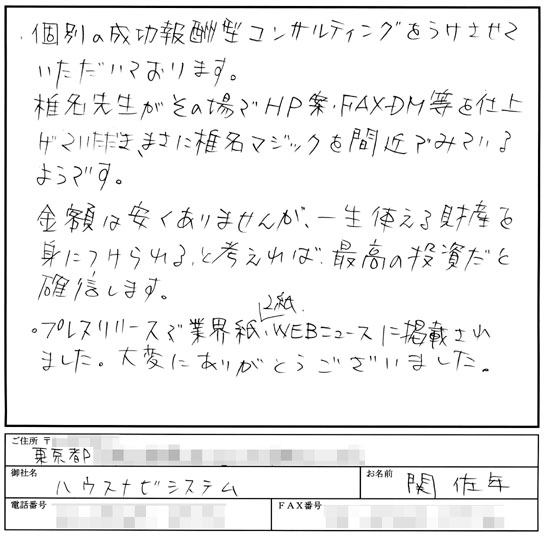 ・個別の成功報酬型コンサルティングをうけさせて
いただいております。
椎名先生がその場でHP案・FAX-DM等を仕上
げていただき、まさに椎名マジックを間近でみている
ようです。
金額は安くありませんが、一生使える財産を
身につけられる、と考えれば、最高の投資だと
確信します。
2紙
・プレスリリースで業界紙・WEBニュースに掲載され
ました。大変にありがとうございました。
ご住所 〒
東京都
御社名 ハウスナビシステム お名前 関 佐年
電話番号 FAX番号